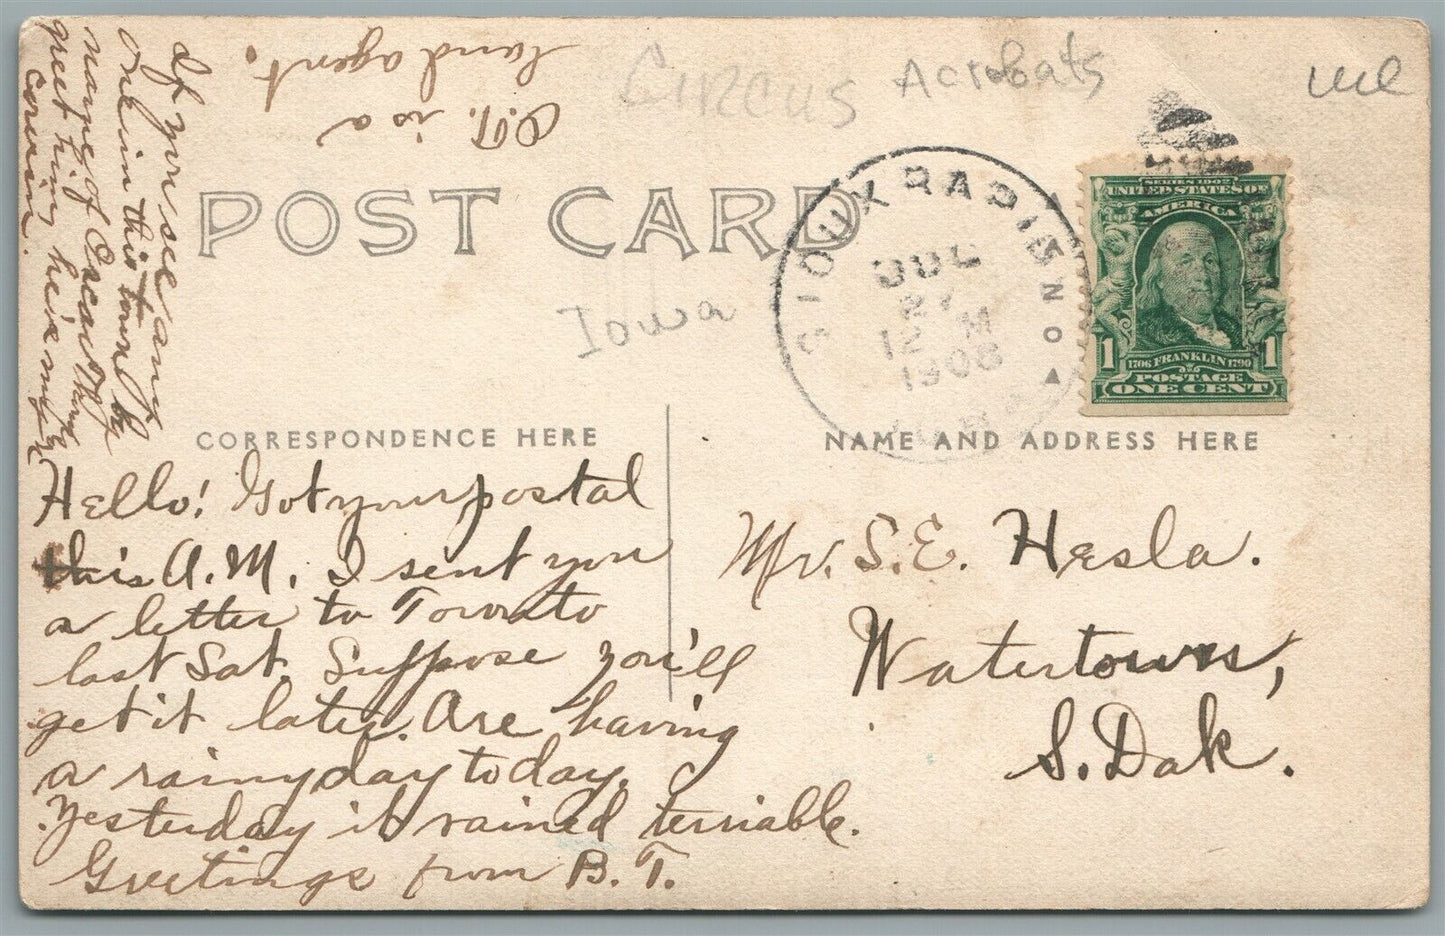 If you see any
one in this town by
name of Oscar Thomp
greet him, he's my
cousin.
O.T. is a
land agent.
Circus Acrobats
POST CARD
Iowa
SIOUX RAPIDS NO
JUL
27
12 M
1908
SERIES 1902
UNITED STATES OF
AMERICA
1 1706 FRANKLIN 1790 1
POSTAGE
ONE CENT
CORRESPONDENCE HERE
NAME AND ADDRESS HERE
Hello! Got your postal
this A.M. I sent you
a letter to Toronto
last Sat. Suppose you'll
get it later. Are having
a rainy day today.
Yesterday it rained terriable.
Greetings from B.T.
Mr. S.E. Hesla.
Watertown,
S. Dak.